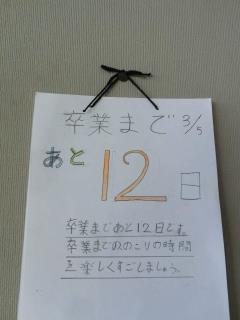 卒業まで 3/5
あと
12日
卒業まであと12日です。
卒業までののこりの時間
を楽しくすごしましょう。